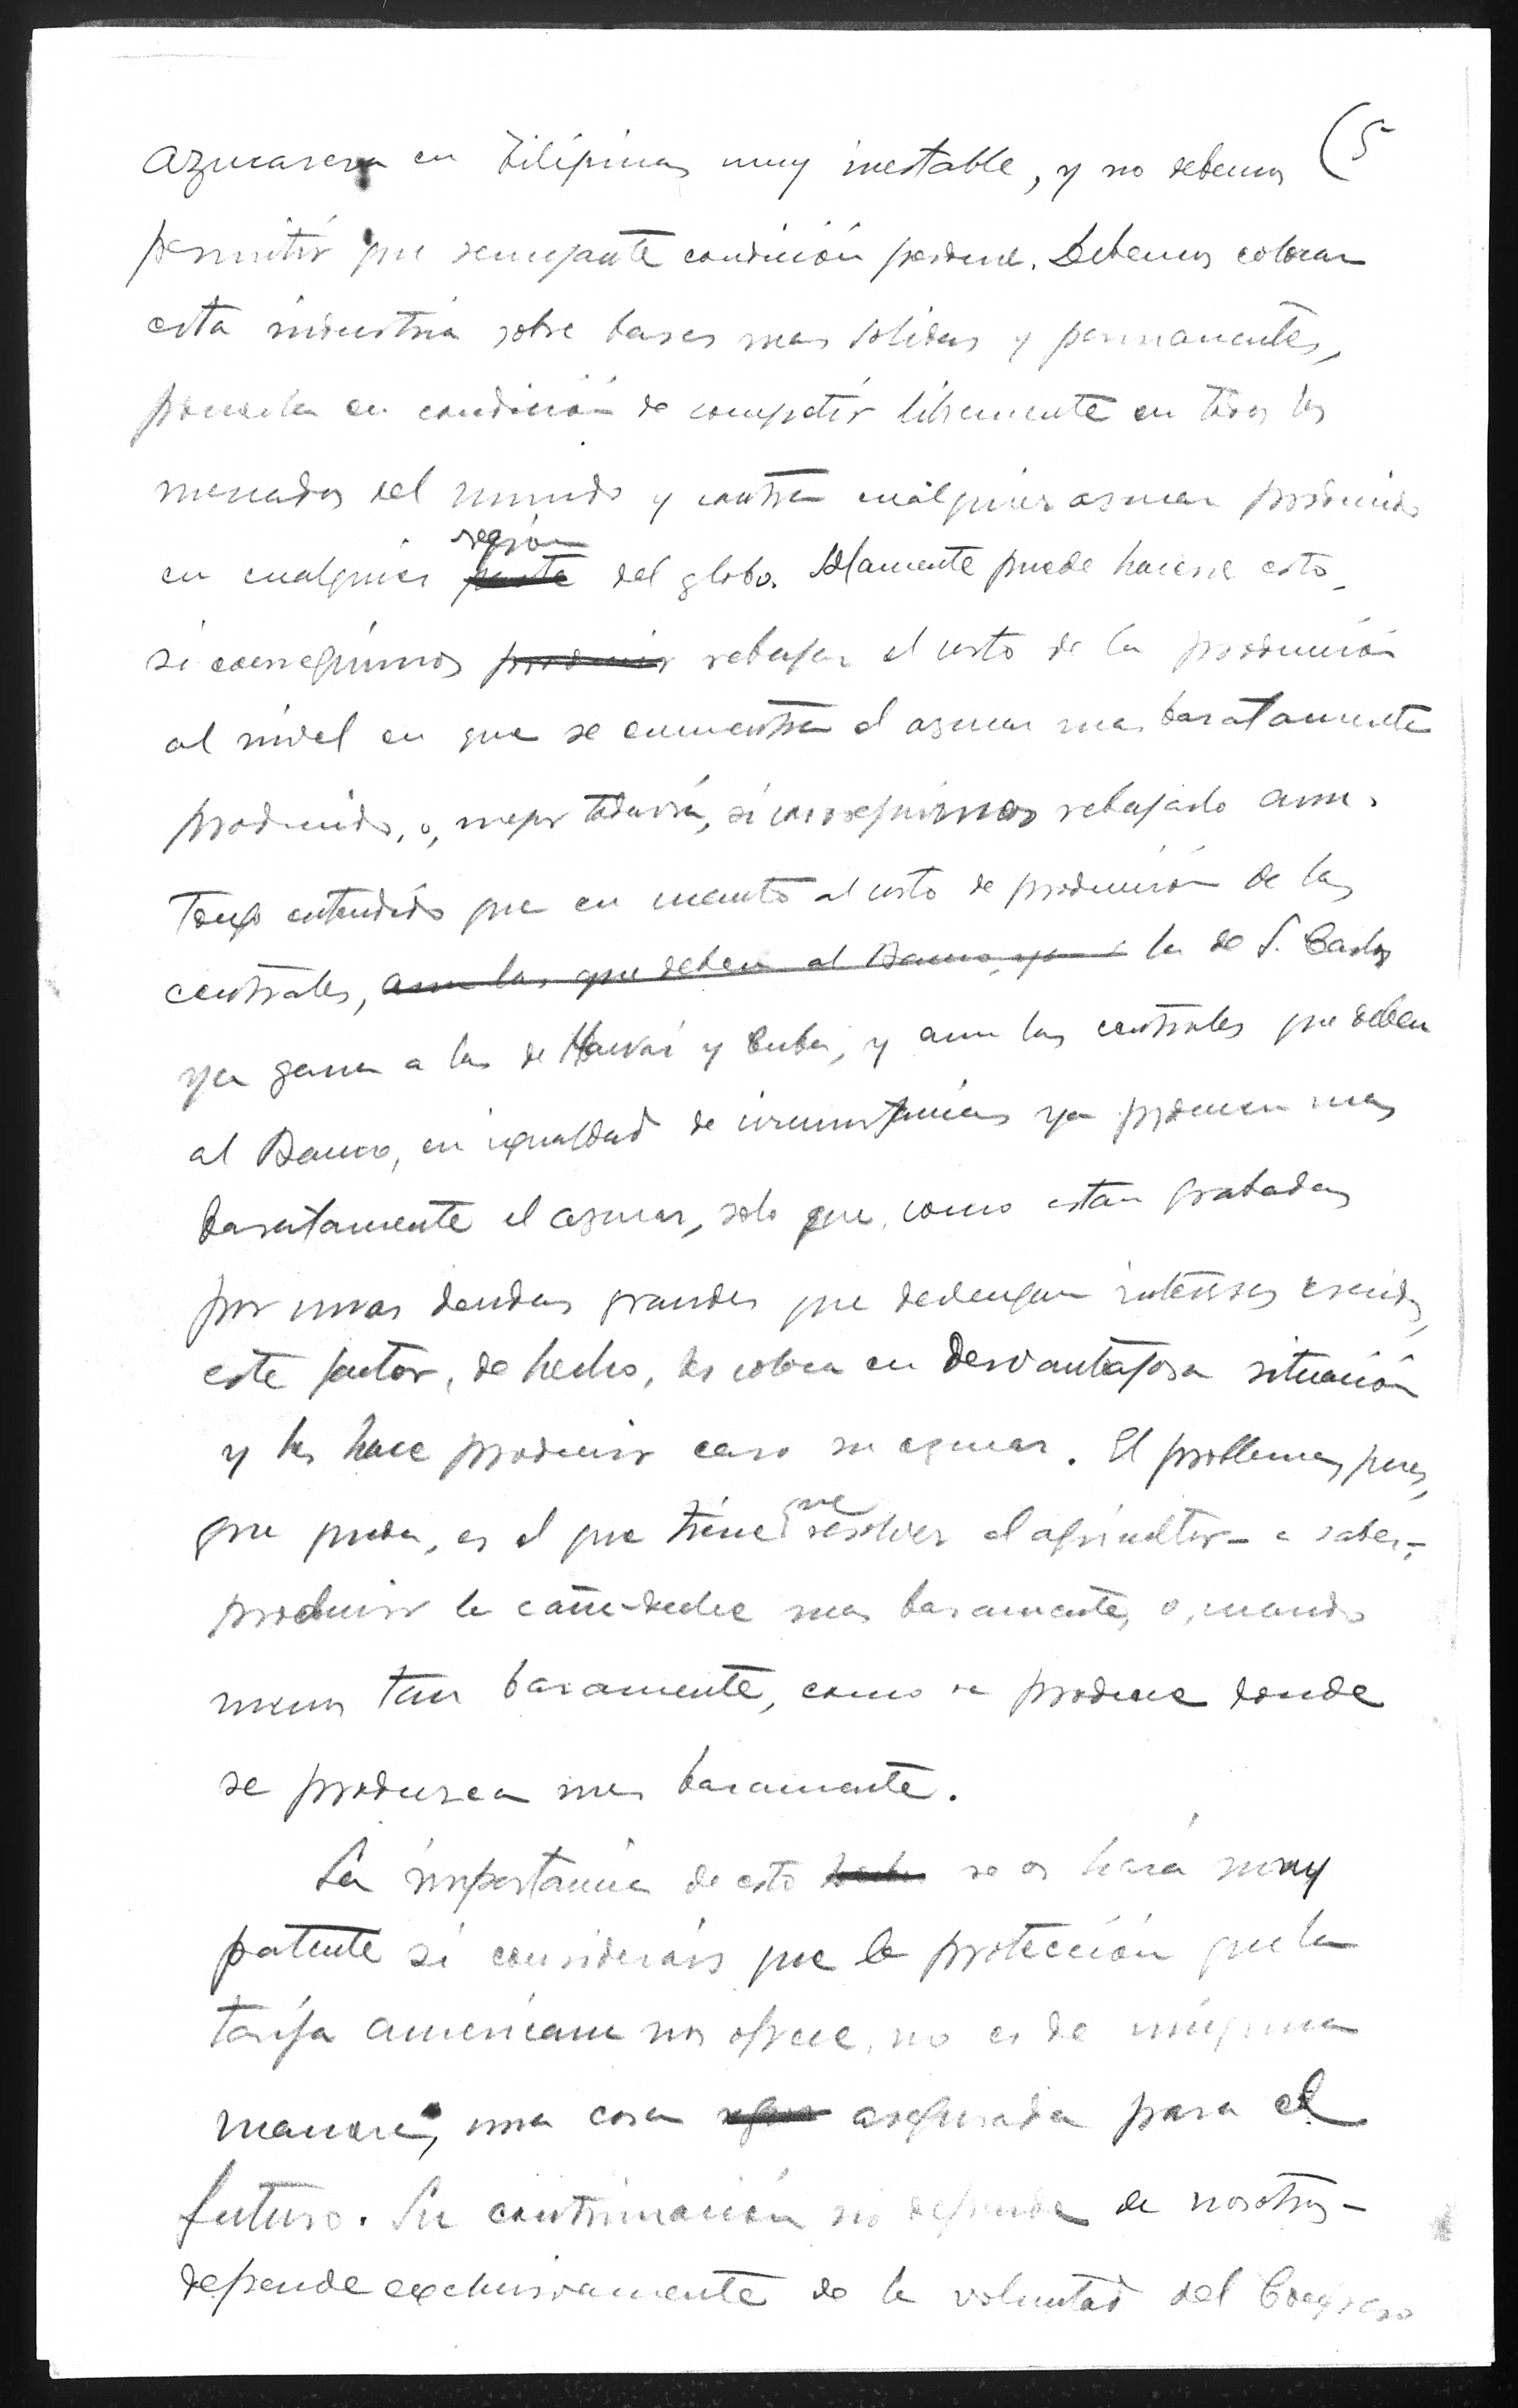 (5
azucarera en Filipinas muy inestable, y no debemos
permitir que semejante condición perdure. Debemos colocar
esta industria sobre bases mas solidas y permanentes,
ponerla en condición de competir libremente en todos los
mercados del mundo y contra cualquier azucar producido
región
en cualquier parte del globo. Solamente puede hacerse esto,
si conseguimos producir rebajar el costo de la producción
al nivel en que se encuentra el azucar mas baratamente
producido, o, mejor todavía, si conseguimos rebajarlo aun.
Tengo entendido que en cuanto al costo de producción de las
centrales, aun las que deben al Banco, ya la de S. Carlos
ya gana a las de Hawai y Cuba, y aun las centrales que deben
al Banco, en igualdad de circunstancias ya producen mas
baratamente el azucar, solo que, como estan grabadas
por unas deudas grandes que devengan intereses crecidos,
este factor, de hecho, les coloca en desventajosa situación
y les hace producir caro su azucar. El problema, pues,
que
que queda, es el que tiene resolver el agricultor - a saber,-
producir la caña-dulce mas baramente, o, cuando
menos tan baramente, como se produce donde
se produzca mas baramente.
La importancia de esto hecho se os hará muy
patente si considerais que la protección que la
tarifa americana nos ofrece, no es de ninguna
manera, una cosa segura asegurada para el
futuro. Su continuación no depende de nosotros -
depende exclusivamente de la voluntad del Congreso